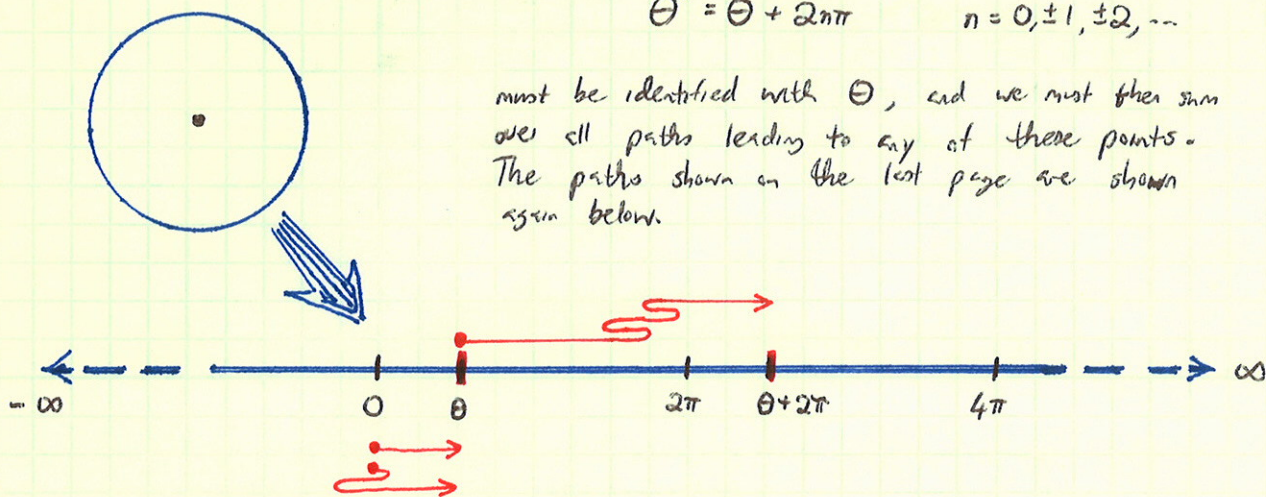 Θ = Θ + 2nπ    n = 0, ±1, ±2, ...
must be identified with Θ, and we must then sum
over all paths leading to any of these points.
The paths shown on the last page are shown
again below.
-∞    0    θ    2π    θ+2π    4π    ∞